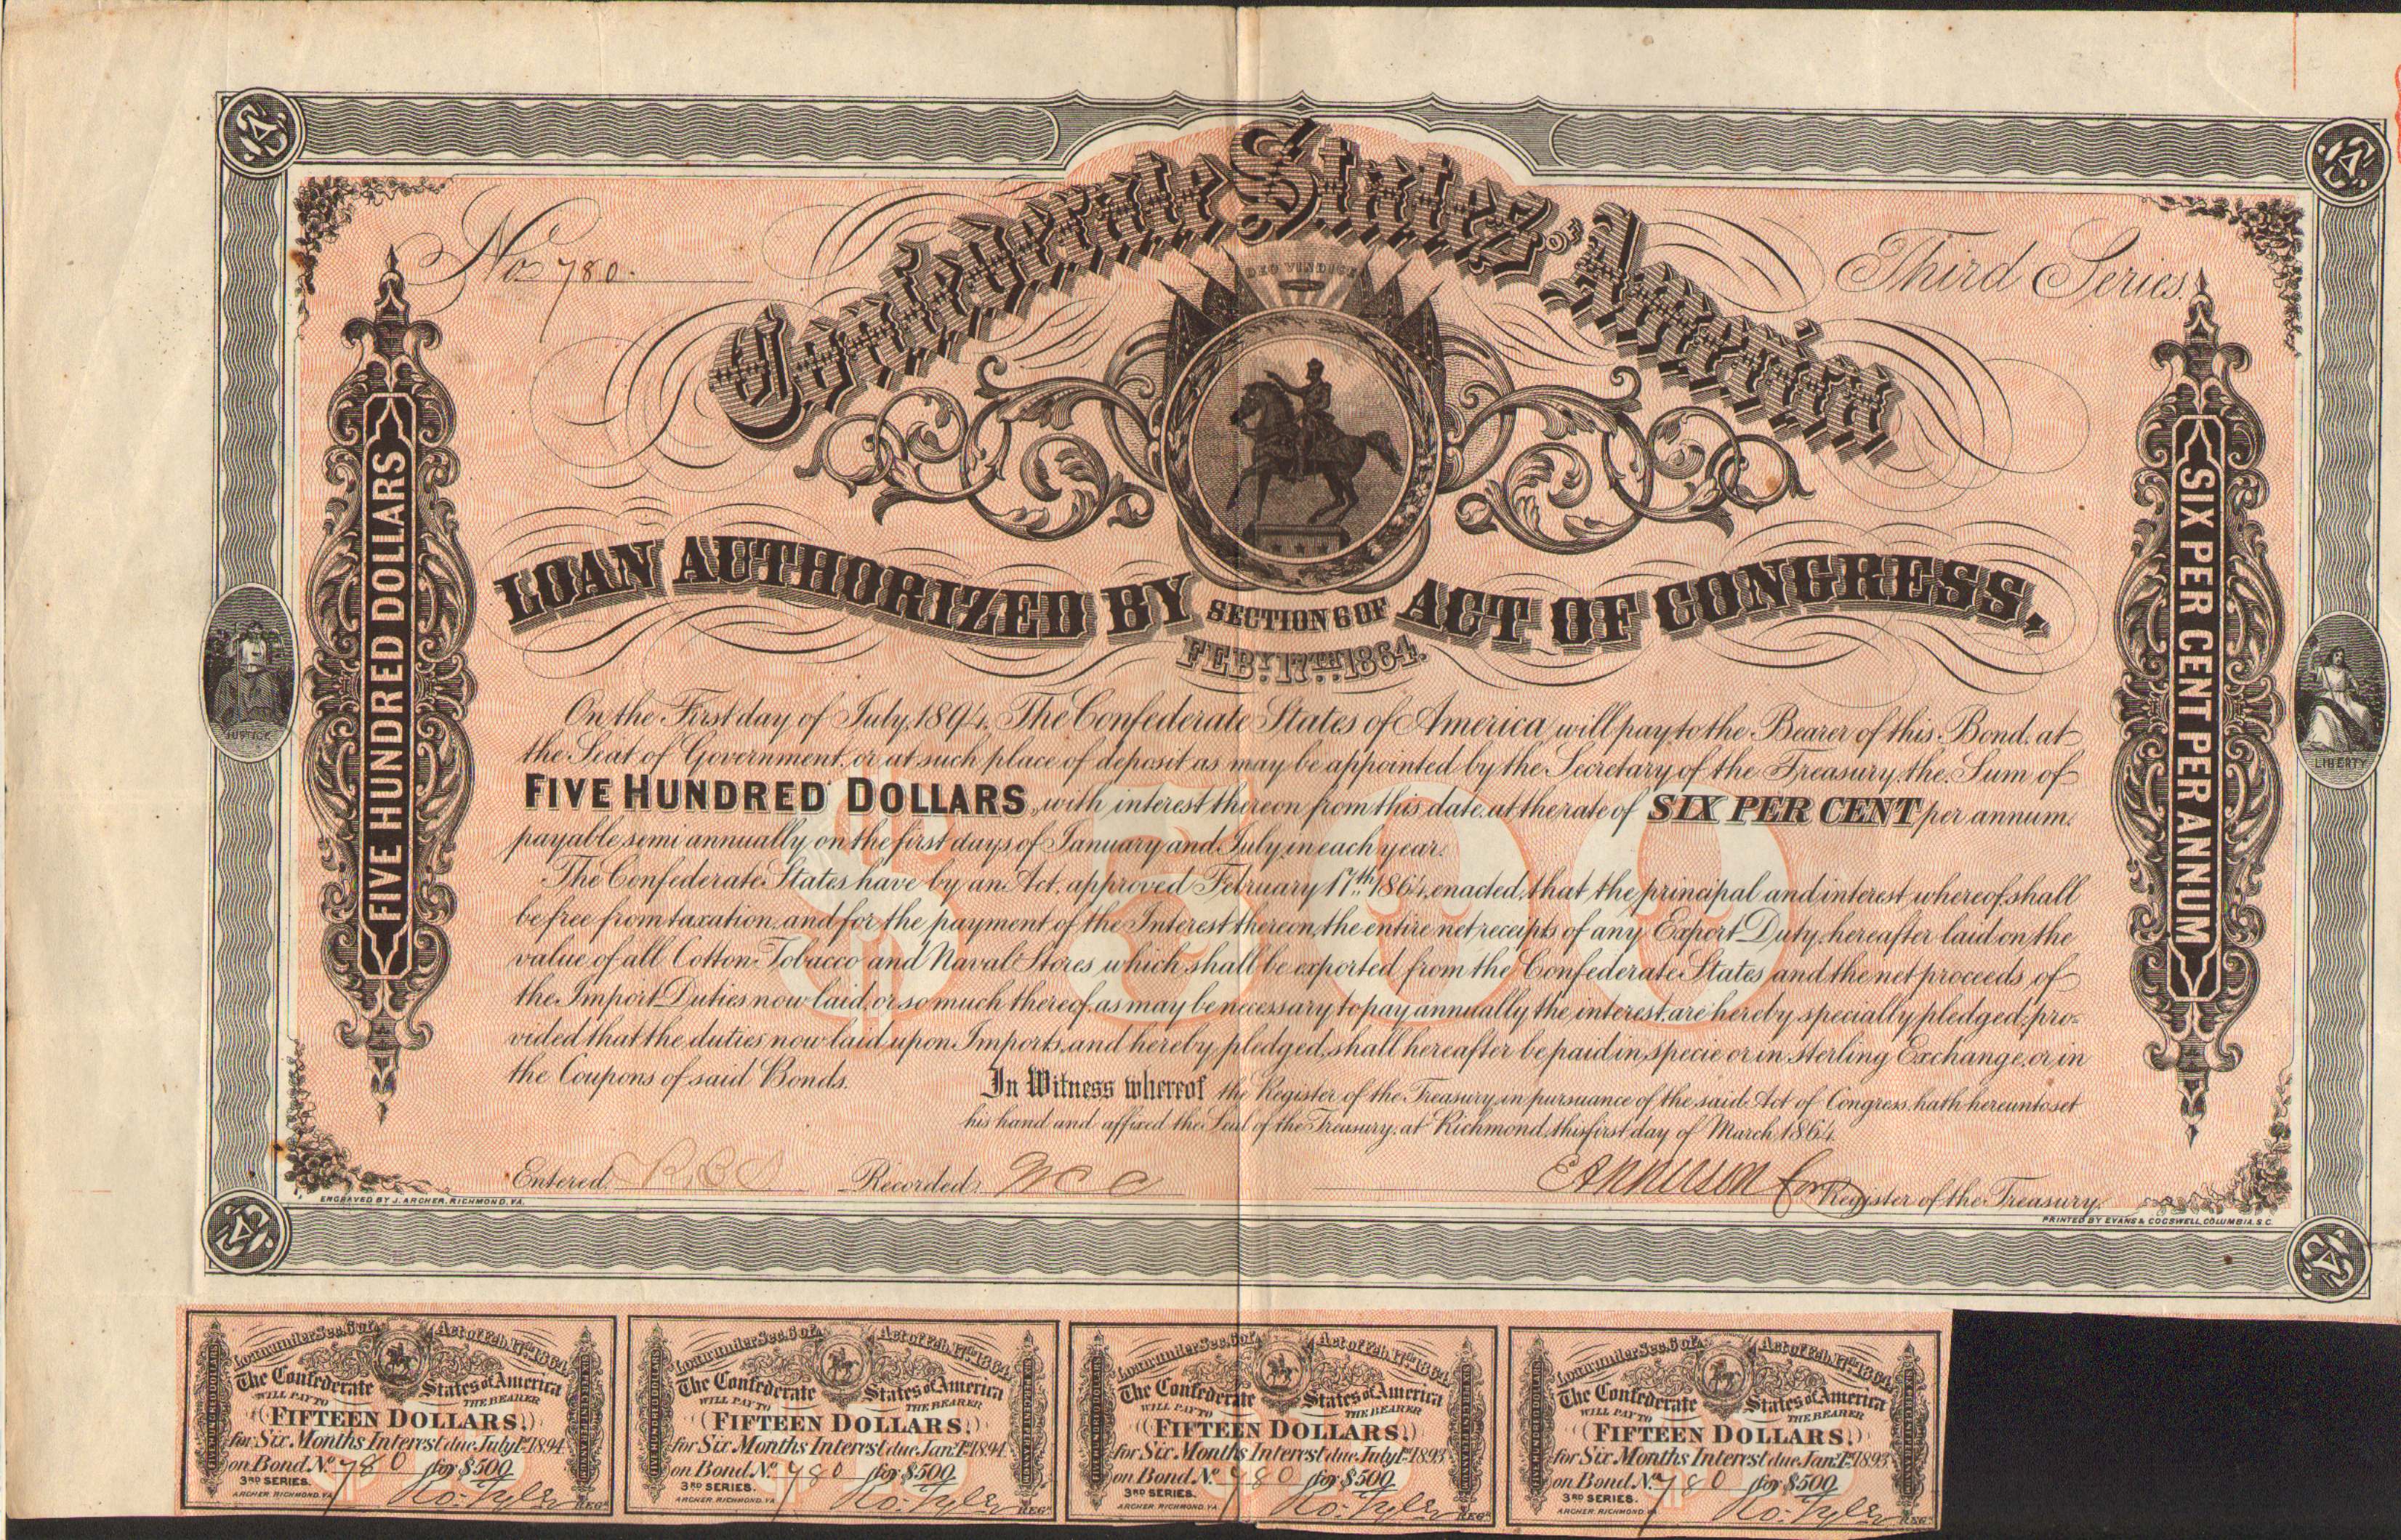 No 780.
Third Series.
Confederate States OF America
DEO VINDICE
LOAN AUTHORIZED BY SECTION 6 OF ACT OF CONGRESS,
FEBY. 17TH. 1864.
FIVE HUNDRED DOLLARS
SIX PER CENT PER ANNUM
JUSTICE
LIBERTY
On the First day of July, 1894, The Confederate States of America will pay to the Bearer of this Bond, at
the Seat of Government, or at such place of deposit as may be appointed by the Secretary of the Treasury, the Sum of
FIVE HUNDRED DOLLARS, with interest thereon from this date, at the rate of SIX PER CENT per annum,
payable semi annually, on the first days of January and July, in each year.
The Confederate States have by an Act, approved February 17th. 1864, enacted, that the principal and interest whereof shall
be free from taxation, and for the payment of the Interest thereon, the entire net receipts of any Export Duty, hereafter laid on the
value of all Cotton Tobacco and Naval Stores which shall be exported from the Confederate States and the net proceeds of
the Import Duties now laid, or so much thereof as may be necessary to pay annually the interest, are hereby specially pledged: pro-
vided that the duties now laid upon Imports, and hereby pledged, shall hereafter be paid in specie or in Sterling Exchange, or in
the Coupons of said Bonds.
$500
In Witness whereof the Register of the Treasury, in pursuance of the said Act of Congress, hath hereunto set
his hand and affixed the Seal of the Treasury, at Richmond, this first day of March, 1864.
Entered Recorded
for Register of the Treasury.
ENGRAVED BY J. ARCHER, RICHMOND, VA.
PRINTED BY EVANS & COGSWELL, COLUMBIA, S.C.
Loan under Sec. 6 of Act of Feb. 17th 1864
The Confederate States of America
WILL PAY TO THE BEARER
(FIFTEEN DOLLARS,)
for Six Months Interest due July 1st 1894
on Bond No 780 for $500
3RD SERIES.
Ro. Tyler
ARCHER RICHMOND. VA REGR
Loan under Sec. 6 of Act of Feb. 17th 1864
The Confederate States of America
WILL PAY TO THE BEARER
(FIFTEEN DOLLARS,)
for Six Months Interest due Jan. 1st 1894
on Bond No 780 for $500
3RD SERIES.
Ro. Tyler
ARCHER RICHMOND. VA REGR
Loan under Sec. 6 of Act of Feb. 17th 1864
The Confederate States of America
WILL PAY TO THE BEARER
(FIFTEEN DOLLARS,)
for Six Months Interest due July 1st 1893
on Bond No 780 for $500
3RD SERIES.
Ro. Tyler
ARCHER RICHMOND. VA REGR
Loan under Sec. 6 of Act of Feb. 17th 1864
The Confederate States of America
WILL PAY TO THE BEARER
(FIFTEEN DOLLARS,)
for Six Months Interest due Jan. 1st 1893
on Bond No 780 for $500
3RD SERIES.
Ro. Tyler
ARCHER RICHMOND. VA REGR